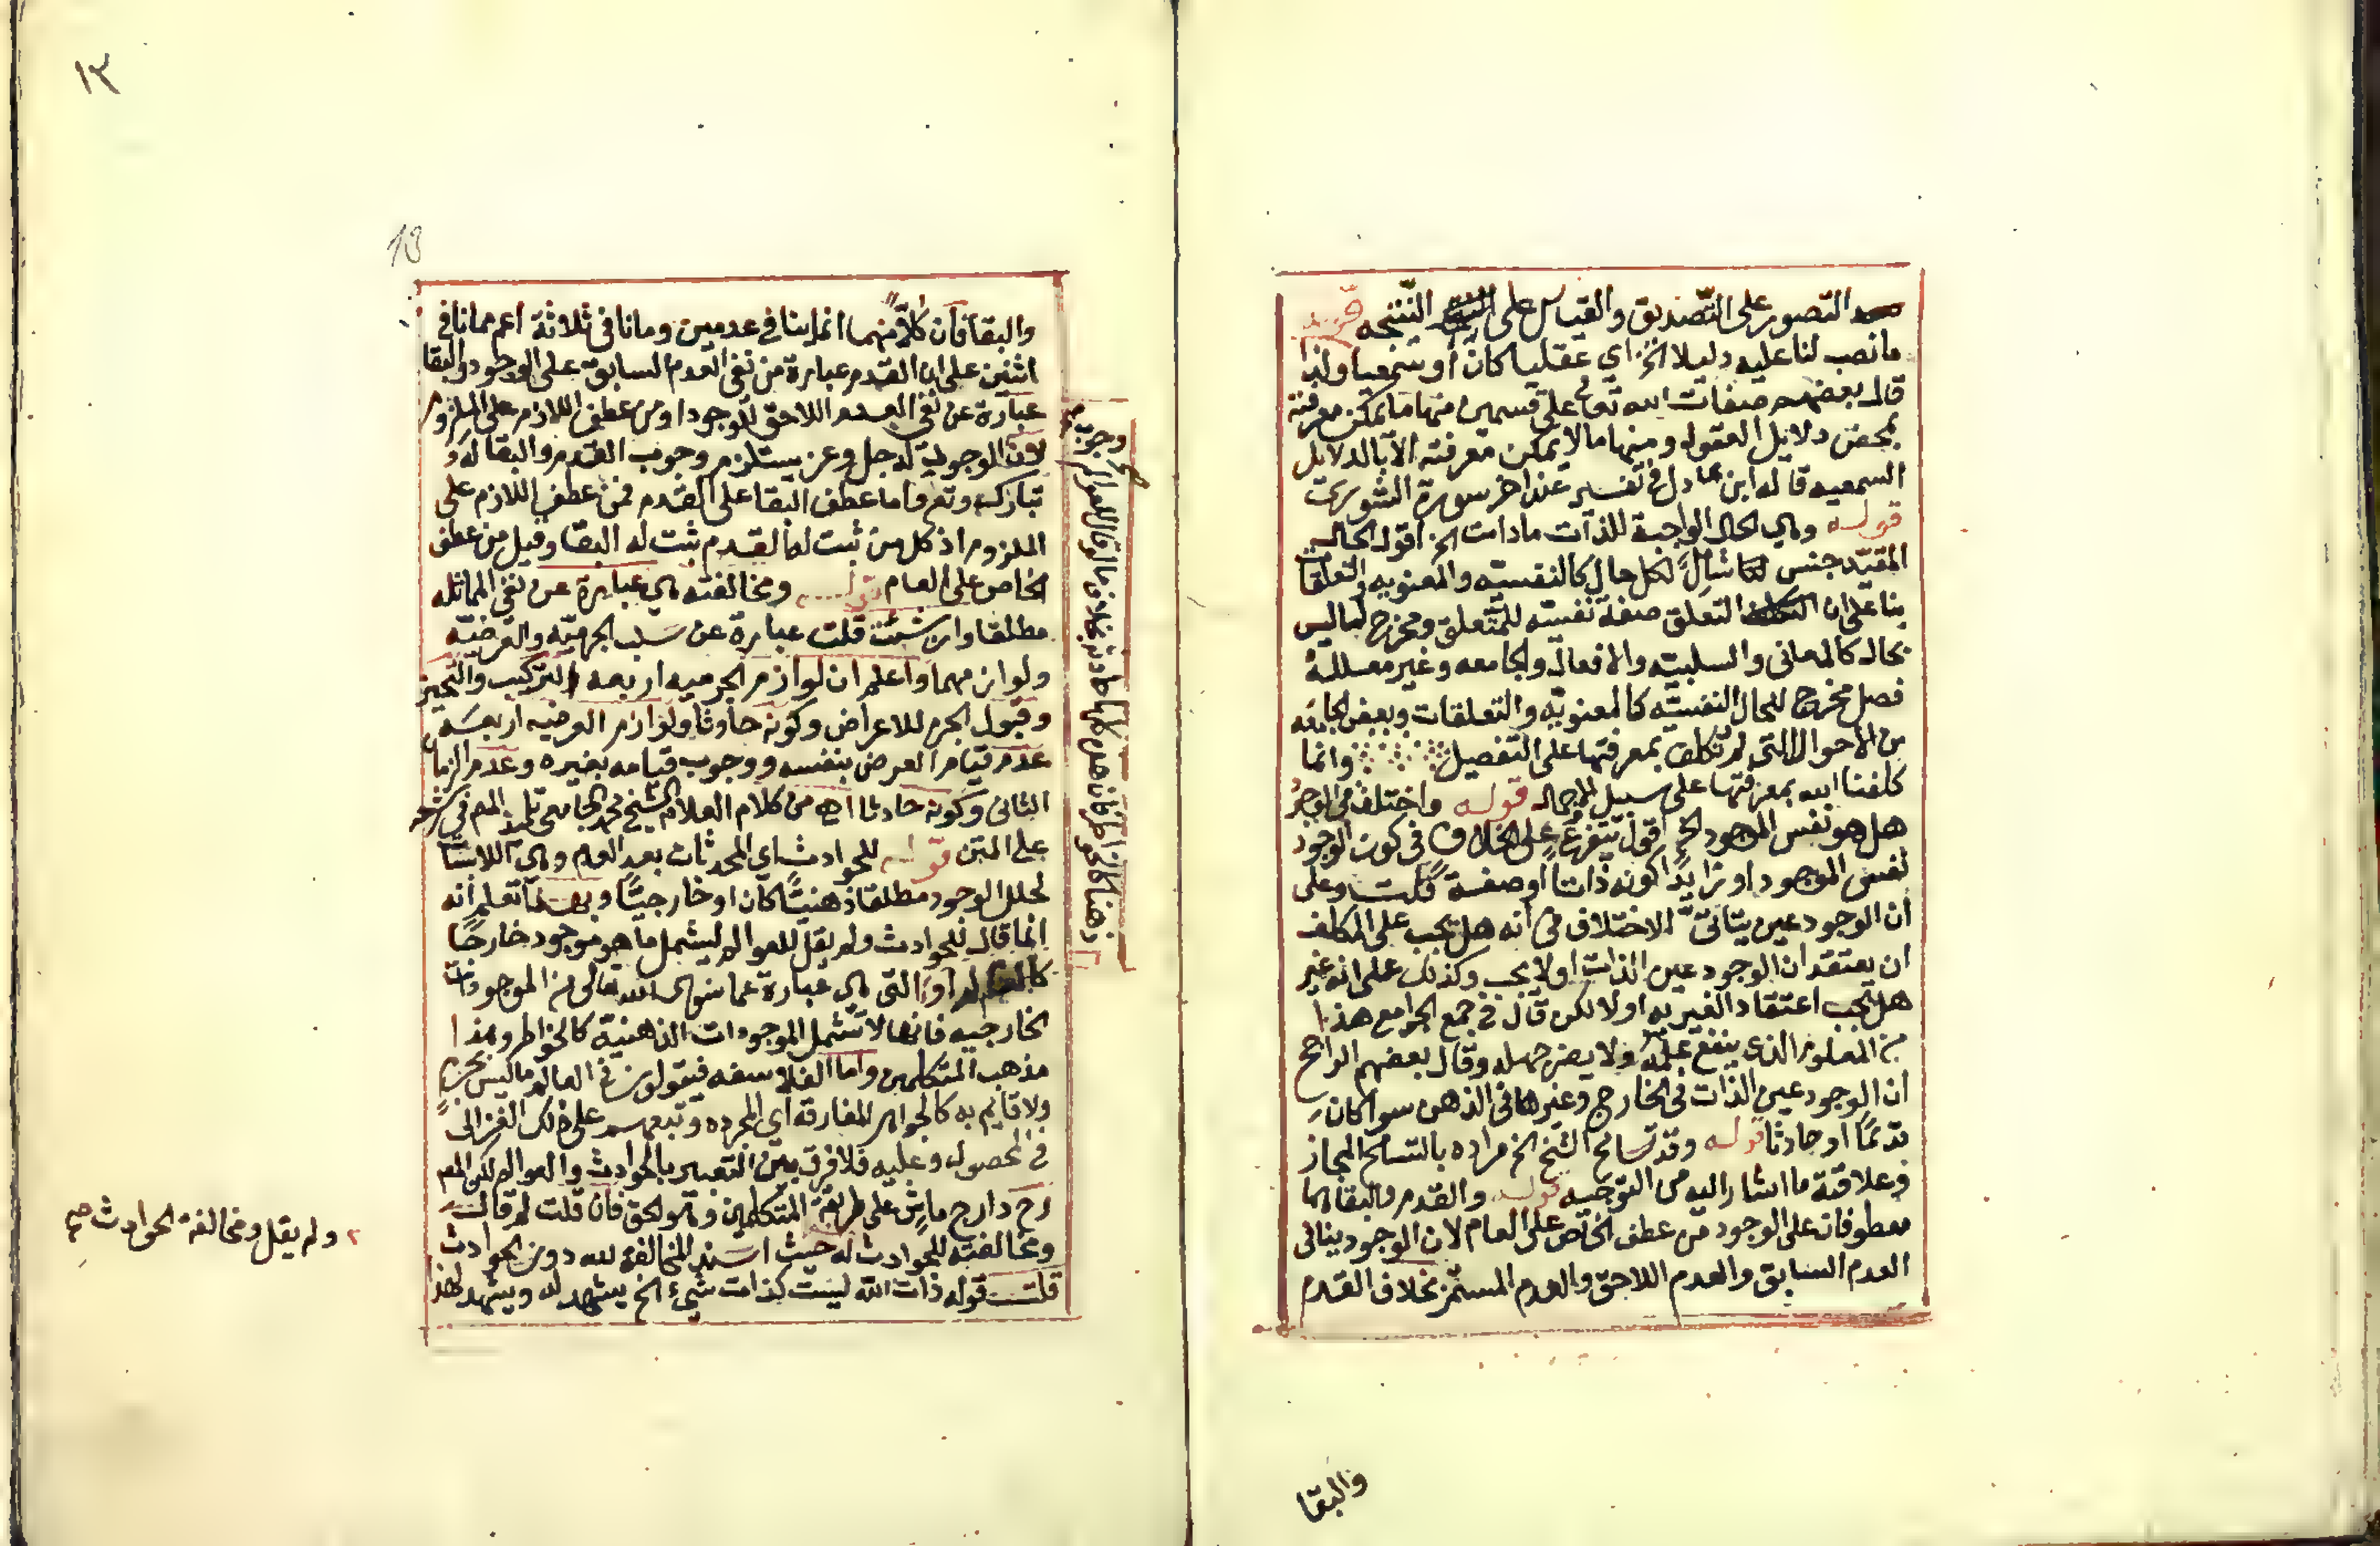 التصور على التصديق والقياس على النتيجه قوله
ما نصب لنا عليه دليلا الخ اي عقليا كان او سمعيا ولذا
قال بعضهم صفات الله تعالى على قسمين منها ما يمكن معرفته
بمحض دلايل العقول ومنها ما لا يمكن معرفته الا بالدلايل
السمعيه قاله ابن عادل في تفسيره عند اخر سورة الشورى
قوله وهي الحال الواجبة للذات ما دامت الخ اقول الحال
المقيد جنس شامل لكل حال كالنفسيه والمعنويه والتعلقات
بنا على ان التعلق صفة نفسيه للمتعلق ومخرج لما ليس
بحال كالمعاني والسلبيه والافعال والجامعه وغير معللة
فصل مخرج للحال النفسيه كالمعنويه والتعلقات وبعض الجامعه
من الاحوال التي لم نكلف بمعرفتها على التفصيل وانما
كلفنا الله بمعرفتها على سبيل الاجمال قوله واختلف في الوجود
هل هو نفس الموجود الخ اقول يتفرع على الخلاف في كون الوجود
نفس الموجود او زايدا كونه ذاتا او صفة قلت وعلى
ان الوجود عين يتاتى الاختلاف في انه هل يجب على المكلف
ان يعتقد ان الوجود عين الذات او لا يجب وكذلك على انه غير
هل يجب اعتقاد الغيريه او لا لكن قال في جمع الجوامع هذا
من المعلوم الذي ينفع علمه ولا يضر جهله وقال بعضهم الراجح
ان الوجود عين الذات في الخارج وغيرها في الذهن سوا كان
قديما او حادثا قوله وقد تسامح الشيخ الخ مراده بالتسامح المجاز
وعلاقته ما اشار اليه من التوجيه قوله والقدم والبقا هما
معطوفان على الوجود من عطف الخاص على العام لان الوجود ينافي
العدم السابق والعدم اللاحق والعدم المستمر بخلاف القدم
والبقا
والبقا فان كلا منهما انما ينافي عدمين وما نافى ثلاثة اعم مما نافى
اثنين على ان القدم عبارة عن نفي العدم السابق على الوجود والبقا
عبارة عن نفي العدم اللاحق للوجود او من عطف اللازم على الملزوم
لان الوجود له جل وعز يستلزم وجوب القدم والبقا له
تبارك وتع واما عطف البقا على القدم فمن عطف اللازم على
الملزوم اذ كل من ثبت له القدم ثبت له البقا وقيل من عطف
الخاص على العام قوله ومخالفته هي عبارة عن نفي المماثله
مطلقا وان شئت قلت عبارة عن سلب الجرميه والعرضيه
ولوازمهما واعلم ان لوازم الجرميه اربعه التركيب والتحيز
وقبول الجرم للاعراض وكونه حادثا ولوازم العرضيه اربعه
عدم قيام العرض بنفسه ووجوب قيامه بغيره وعدم الزمان
الثاني وكونه حادثا اه من كلام العلام الشيخ تلميذ المص في شرحه
على المتن قوله للحوادث اي المحدثات بعد العدم وهي
الوجود مطلقا ذهنيا كان او خارجيا تعلم انه
انما قال للحوادث ولم يقل للعوالم ليشمل ما هو موجود خارجا
التي هي عبارة عما سوى الله تعالى من الموجودات
الخارجيه فانها لا تشمل الموجودات الذهنية كالخواطر وهذا
مذهب المتكلمين واما الفلاسفه فيقولون في العالم ما ليس بجرم
ولا قايم به كالجواهر المفارقه اي المجرده وتبعهم على ذلك الغزالى
في المحصول وعليه فلا فرق بين التعبير بالحوادث والعوالم لكن المص
رح دارج ماش على طريقة المتكلمين وهو الحق فان قلت لم قال
ومخالفته للحوادث له حيث اسند المخالفة لله دون الحوادث
قلت قوله ذات الله ليست كذات شيء الخ يشهد له ويشهد لهذا
ولم يقل ومخالفة الحوادث صح
١٣
13